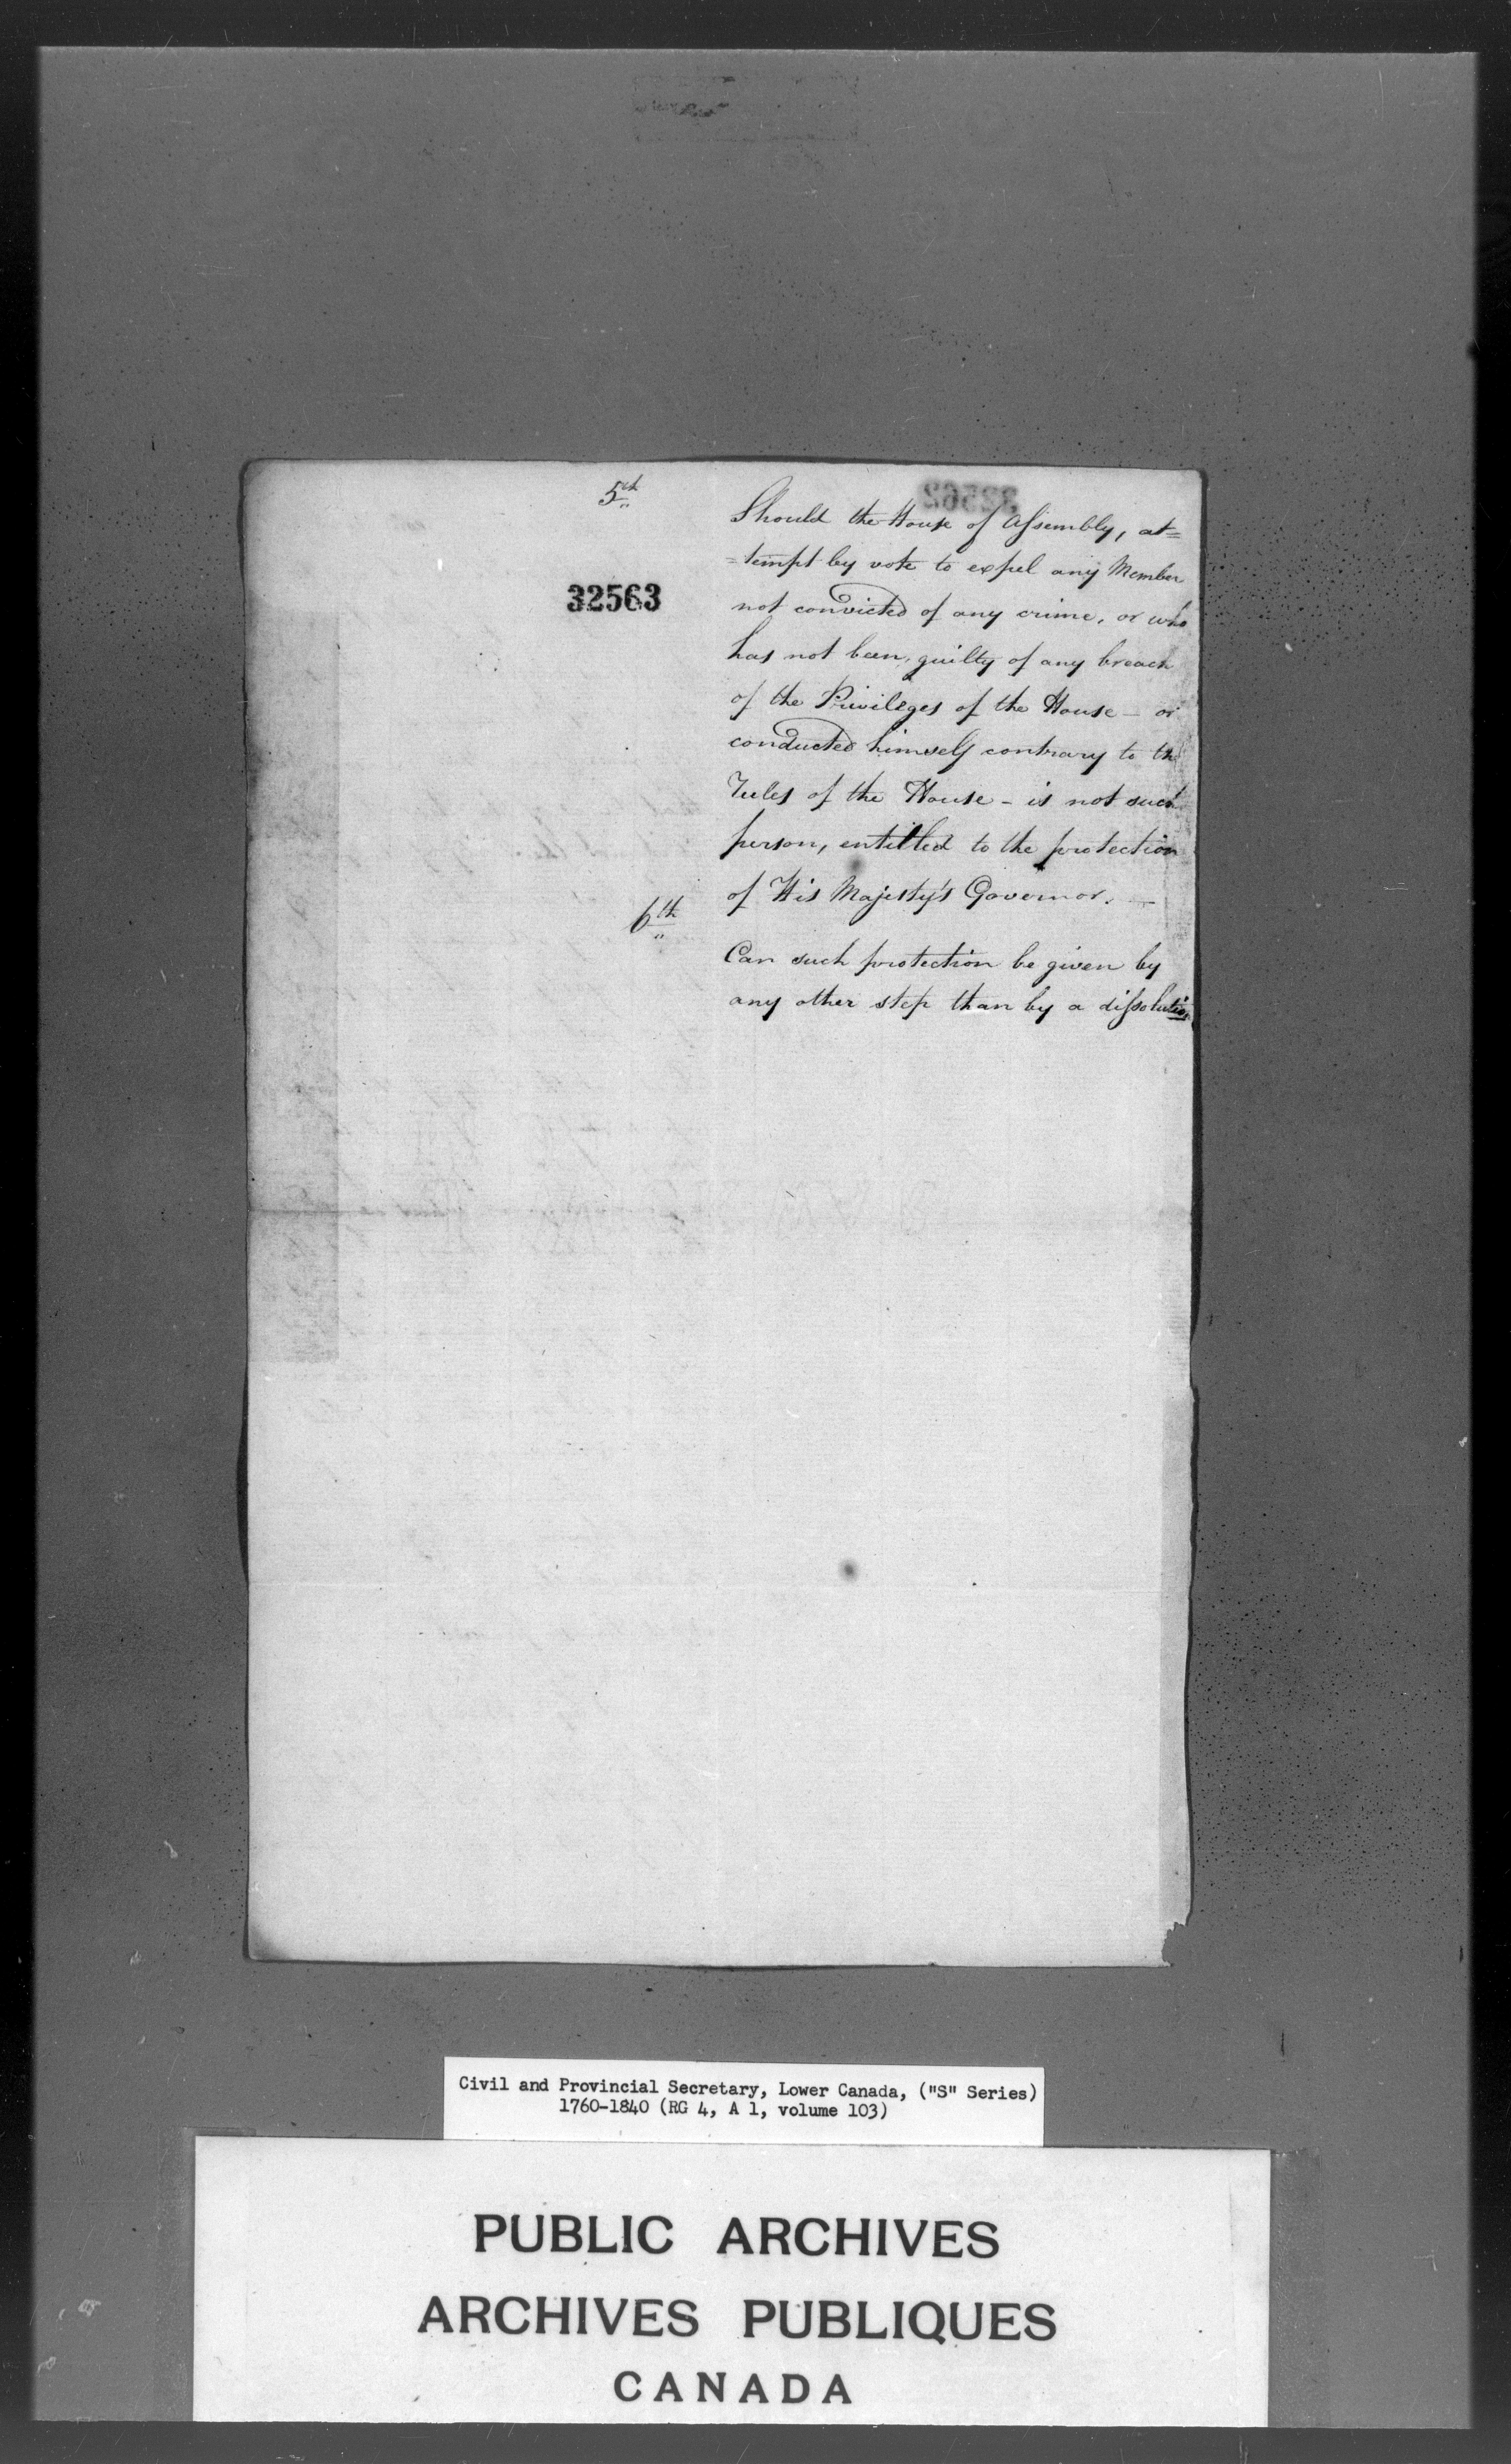 5th
32563
Should the House of Assembly, at=
=tempt by vote to expel any Member
not convicted of any crime, or who
has not been, guilty of any breach
of the Privileges of the House — or
conducted himself contrary to the
rules of the House – is not such
person, entitled to the protection
of His Majesty's Governor. —
6th
Can such protection be given by
any other step than by a dissolution
Civil and Provincial Secretary, Lower Canada, ("S" Series)
1760-1840 (RG 4, A 1, volume 103)
PUBLIC ARCHIVES
ARCHIVES PUBLIQUES
CANADA